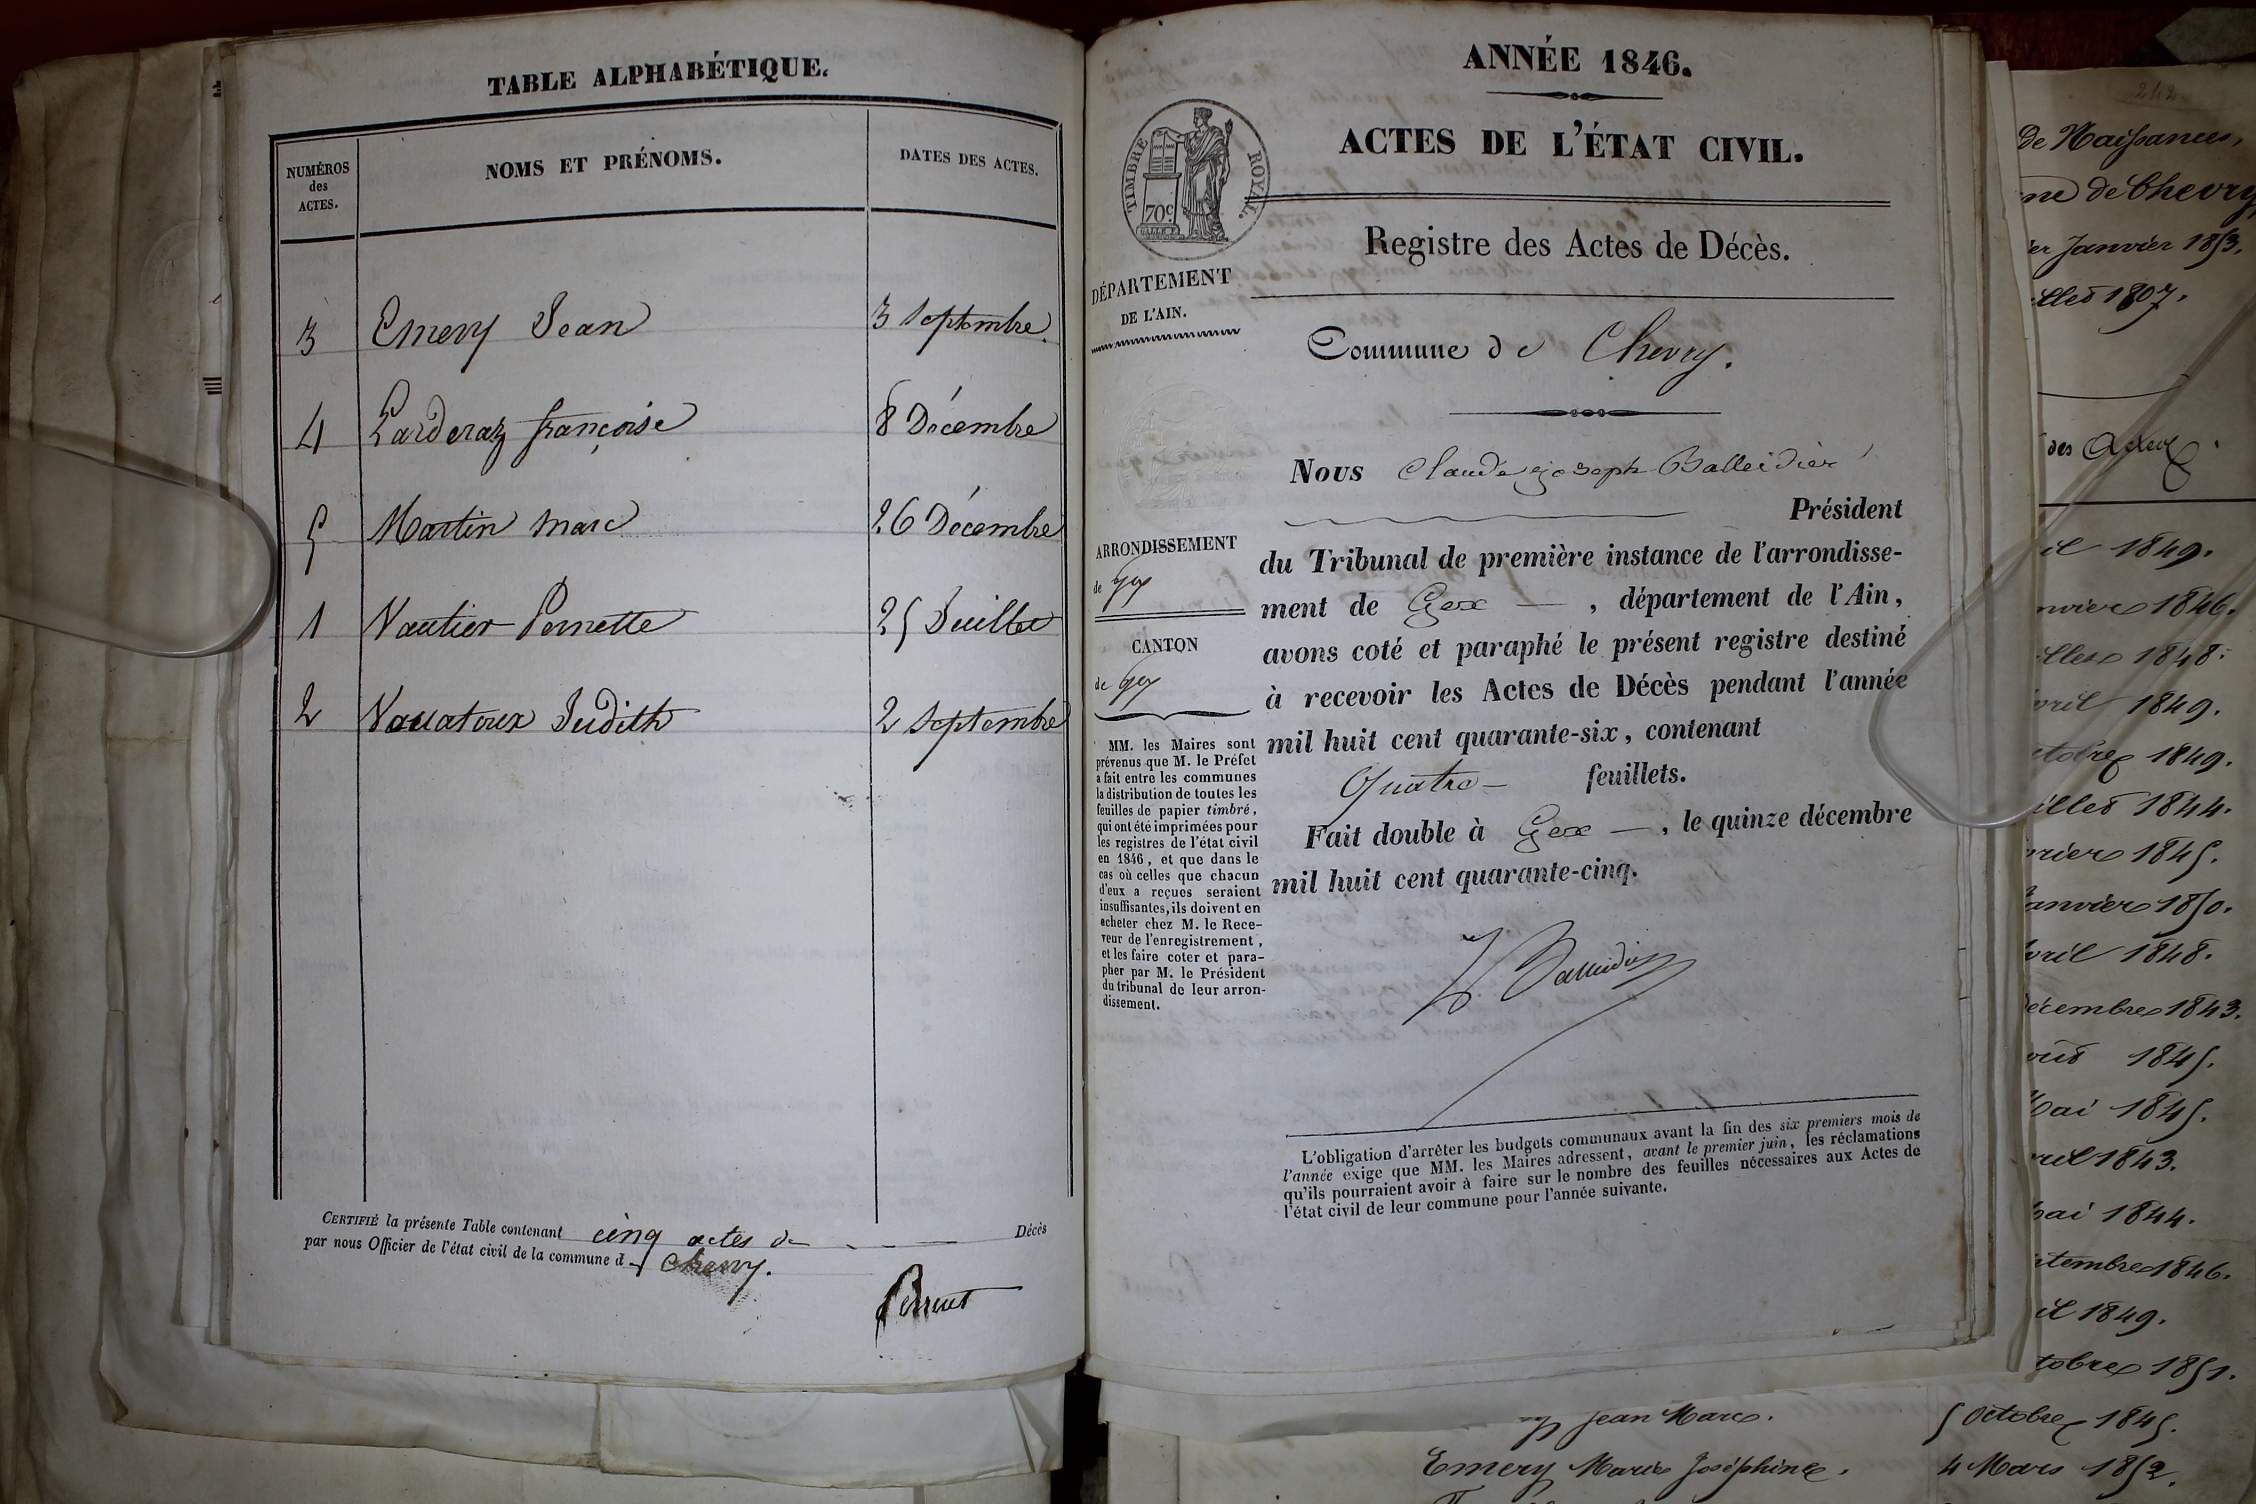 TABLE ALPHABÉTIQUE.
NUMÉROS des ACTES. NOMS ET PRÉNOMS. DATES DES ACTES.
3 Emery Jean 3 Septembre.
4 Larderaz françoise 8 Décembre
5 Martin marc 26 Décembre
1 Vautier Pernette 25 Juillet
2 Vauatoux Judith 2 Septembre
CERTIFIÉ la présente Table contenant cinq actes de Décès
par nous Officier de l'état civil de la commune d Chevry.
Perrent
ANNÉE 1846.
ACTES DE L'ÉTAT CIVIL.
TIMBRE ROYAL.
70c
Registre des Actes de Décès.
DÉPARTEMENT
DE L'AIN.
Commune de Chevry.
Nous Claude joseph Balleidier
Président
du Tribunal de première instance de l'arrondisse-
ment de Gex , département de l'Ain,
avons coté et paraphé le présent registre destiné
à recevoir les Actes de Décès pendant l'année
mil huit cent quarante-six, contenant
Quatre feuillets.
Fait double à Gex , le quinze décembre
mil huit cent quarante-cinq.
Balleidier
ARRONDISSEMENT
de Gex
CANTON
de Gex
MM. les Maires sont
prévenus que M. le Préfet
a fait entre les communes
la distribution de toutes les
feuilles de papier timbré,
qui ont été imprimées pour
les registres de l'état civil
en 1846, et que dans le
cas où celles que chacun
d'eux a reçues seraient
insuffisantes, ils doivent en
acheter chez M. le Rece-
veur de l'enregistrement,
et les faire coter et para-
pher par M. le Président
du tribunal de leur arron-
dissement.
L'obligation d'arrêter les budgets communaux avant la fin des six premiers mois de
l'année exige que MM. les Maires adressent, avant le premier juin, les réclamations
qu'ils pourraient avoir à faire sur le nombre des feuilles nécessaires aux Actes de
l'état civil de leur commune pour l'année suivante.
242
de Naissances,
ne de Chevry
er Janvier 1853.
illet 1807.
des Actes.
il 1849.
nvier 1846.
illet 1848.
vril 1849.
ctobre 1849.
illet 1844.
vrier 1845.
Janvier 1850.
vril 1848.
écembre 1843.
out 1845.
Mai 1845.
vril 1843.
Mai 1844.
ptembre 1846.
il 1849.
tobre 1851.
y Jean Marc. 5 Octobre 1845.
Emery Marie Joséphine. 4 Mars 1852.